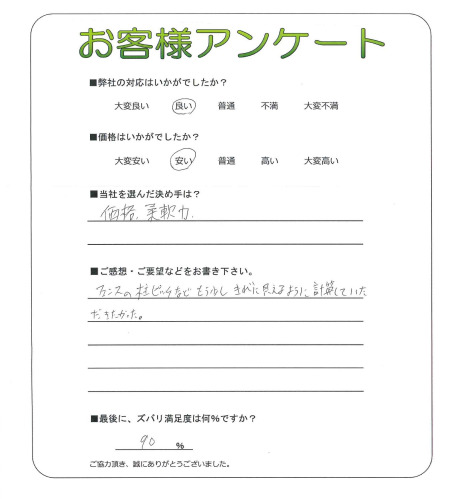 お客様アンケート
■弊社の対応はいかがでしたか？
大変良い 良い 普通 不満 大変不満
■価格はいかがでしたか？
大変安い 安い 普通 高い 大変高い
■当社を選んだ決め手は？
価格、柔軟力
■ご感想・ご要望などをお書き下さい。
フェンスの柱ピッチなど もう少し きれいに見えるように 計算していた
だきたかった。
■最後に、ズバリ満足度は何％ですか？
90 ％
ご協力頂き、誠にありがとうございました。